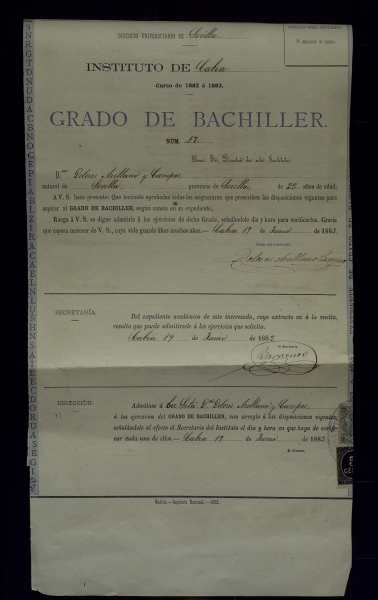 DISTRITO UNIVERSITARIO DE Sevilla
INSTITUTO DE Cabra
Curso de 1882 á 1883.
GRADO DE BACHILLER.
NÚM. 17.
Ilmo. Sr. Director de este Instituto.
D.ª Dolores Arellano y Campos,
natural de Sevilla, provincia de Sevilla, de 22 años de edad,
A V. S. hace presente: Que teniendo aprobadas todas las asignaturas que prescriben las disposiciones vigentes para
aspirar al GRADO DE BACHILLER, segun consta en su expediente,
Ruega á V. S. se digne admitirle á los ejercicios de dicho Grado, señalándole dia y hora para verificarlos. Gracia
que espera merecer de V. S., cuya vida guarde Dios muchos años.— Cabra 19 de Junio de 1883.
Dolores Arellano Campos
SECRETARÍA.
Del expediente académico de este interesado, cuyo extracto va á la vuelta,
resulta que puede admitírsele á los ejercicios que solicita.
Cabra 19 de Junio de 1883
El Secretario
DIRECCION.
Admítase á la Srta. D.ª Dolores Arellano y Campos,
á los ejercicios del GRADO DE BACHILLER, con arreglo á las disposiciones vigentes,
señalándole al efecto el Secretario del Instituto el dia y hora en que haya de verifi-
car cada uno de ellos.— Cabra 19 de Junio de 1883.
El Director
Madrid.—Imprenta Nacional.—1882.